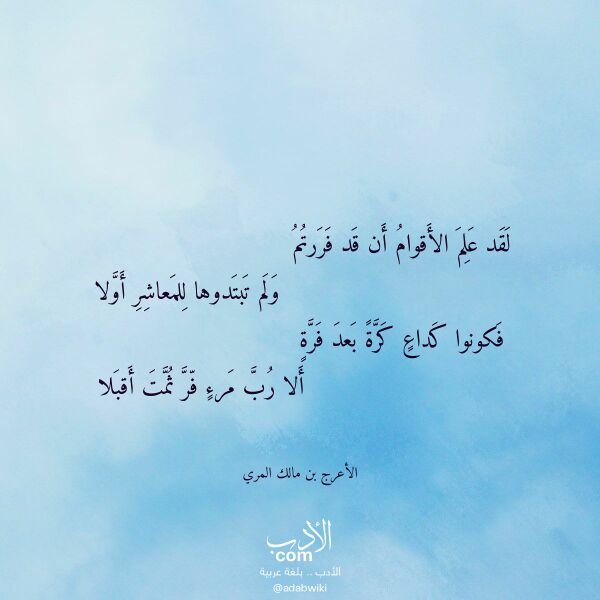 لَقَد عَلِمَ الأَقوامُ أَن قَد فَرَرتُمُ
وَلَم تَبتَدوها لِلمَعاشِرِ أَوَّلا
فَكونوا كَداعٍ كَرَّةً بَعدَ فَرَّةٍ
أَلا رُبَّ مَرءٍ فّرَّ ثُمَّتَ أَقبَلا
الأعرج بن مالك المري
الأدب
com
الأدب .. بلغة عربية
@adabwiki